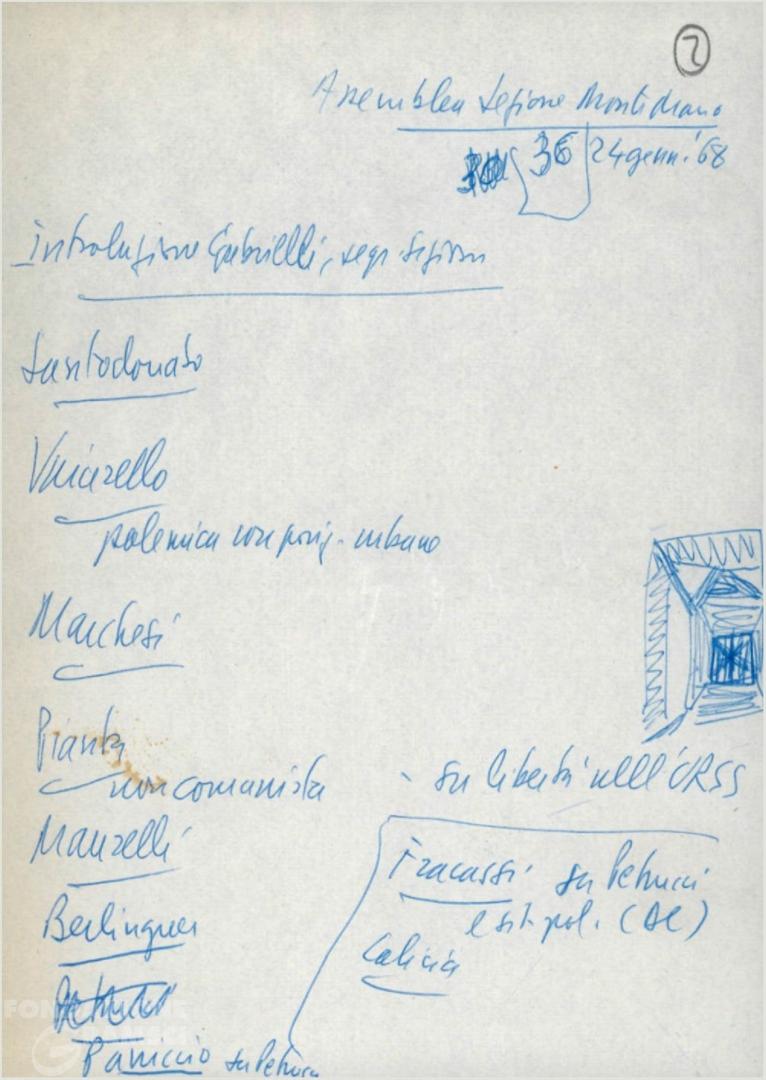 2
Assemblea Sezione Monti
36 24 genn. '68
Introduzione Gabrielli, segr Sezione
Santodonato
polemica con urbano
Marchesi
Pianta
non comunista - su libertà nell'URSS
Manzelli
Fracassi su Petrucci
e sit. pol. (DC)
Berlinguer
Paniccio su Petrucci